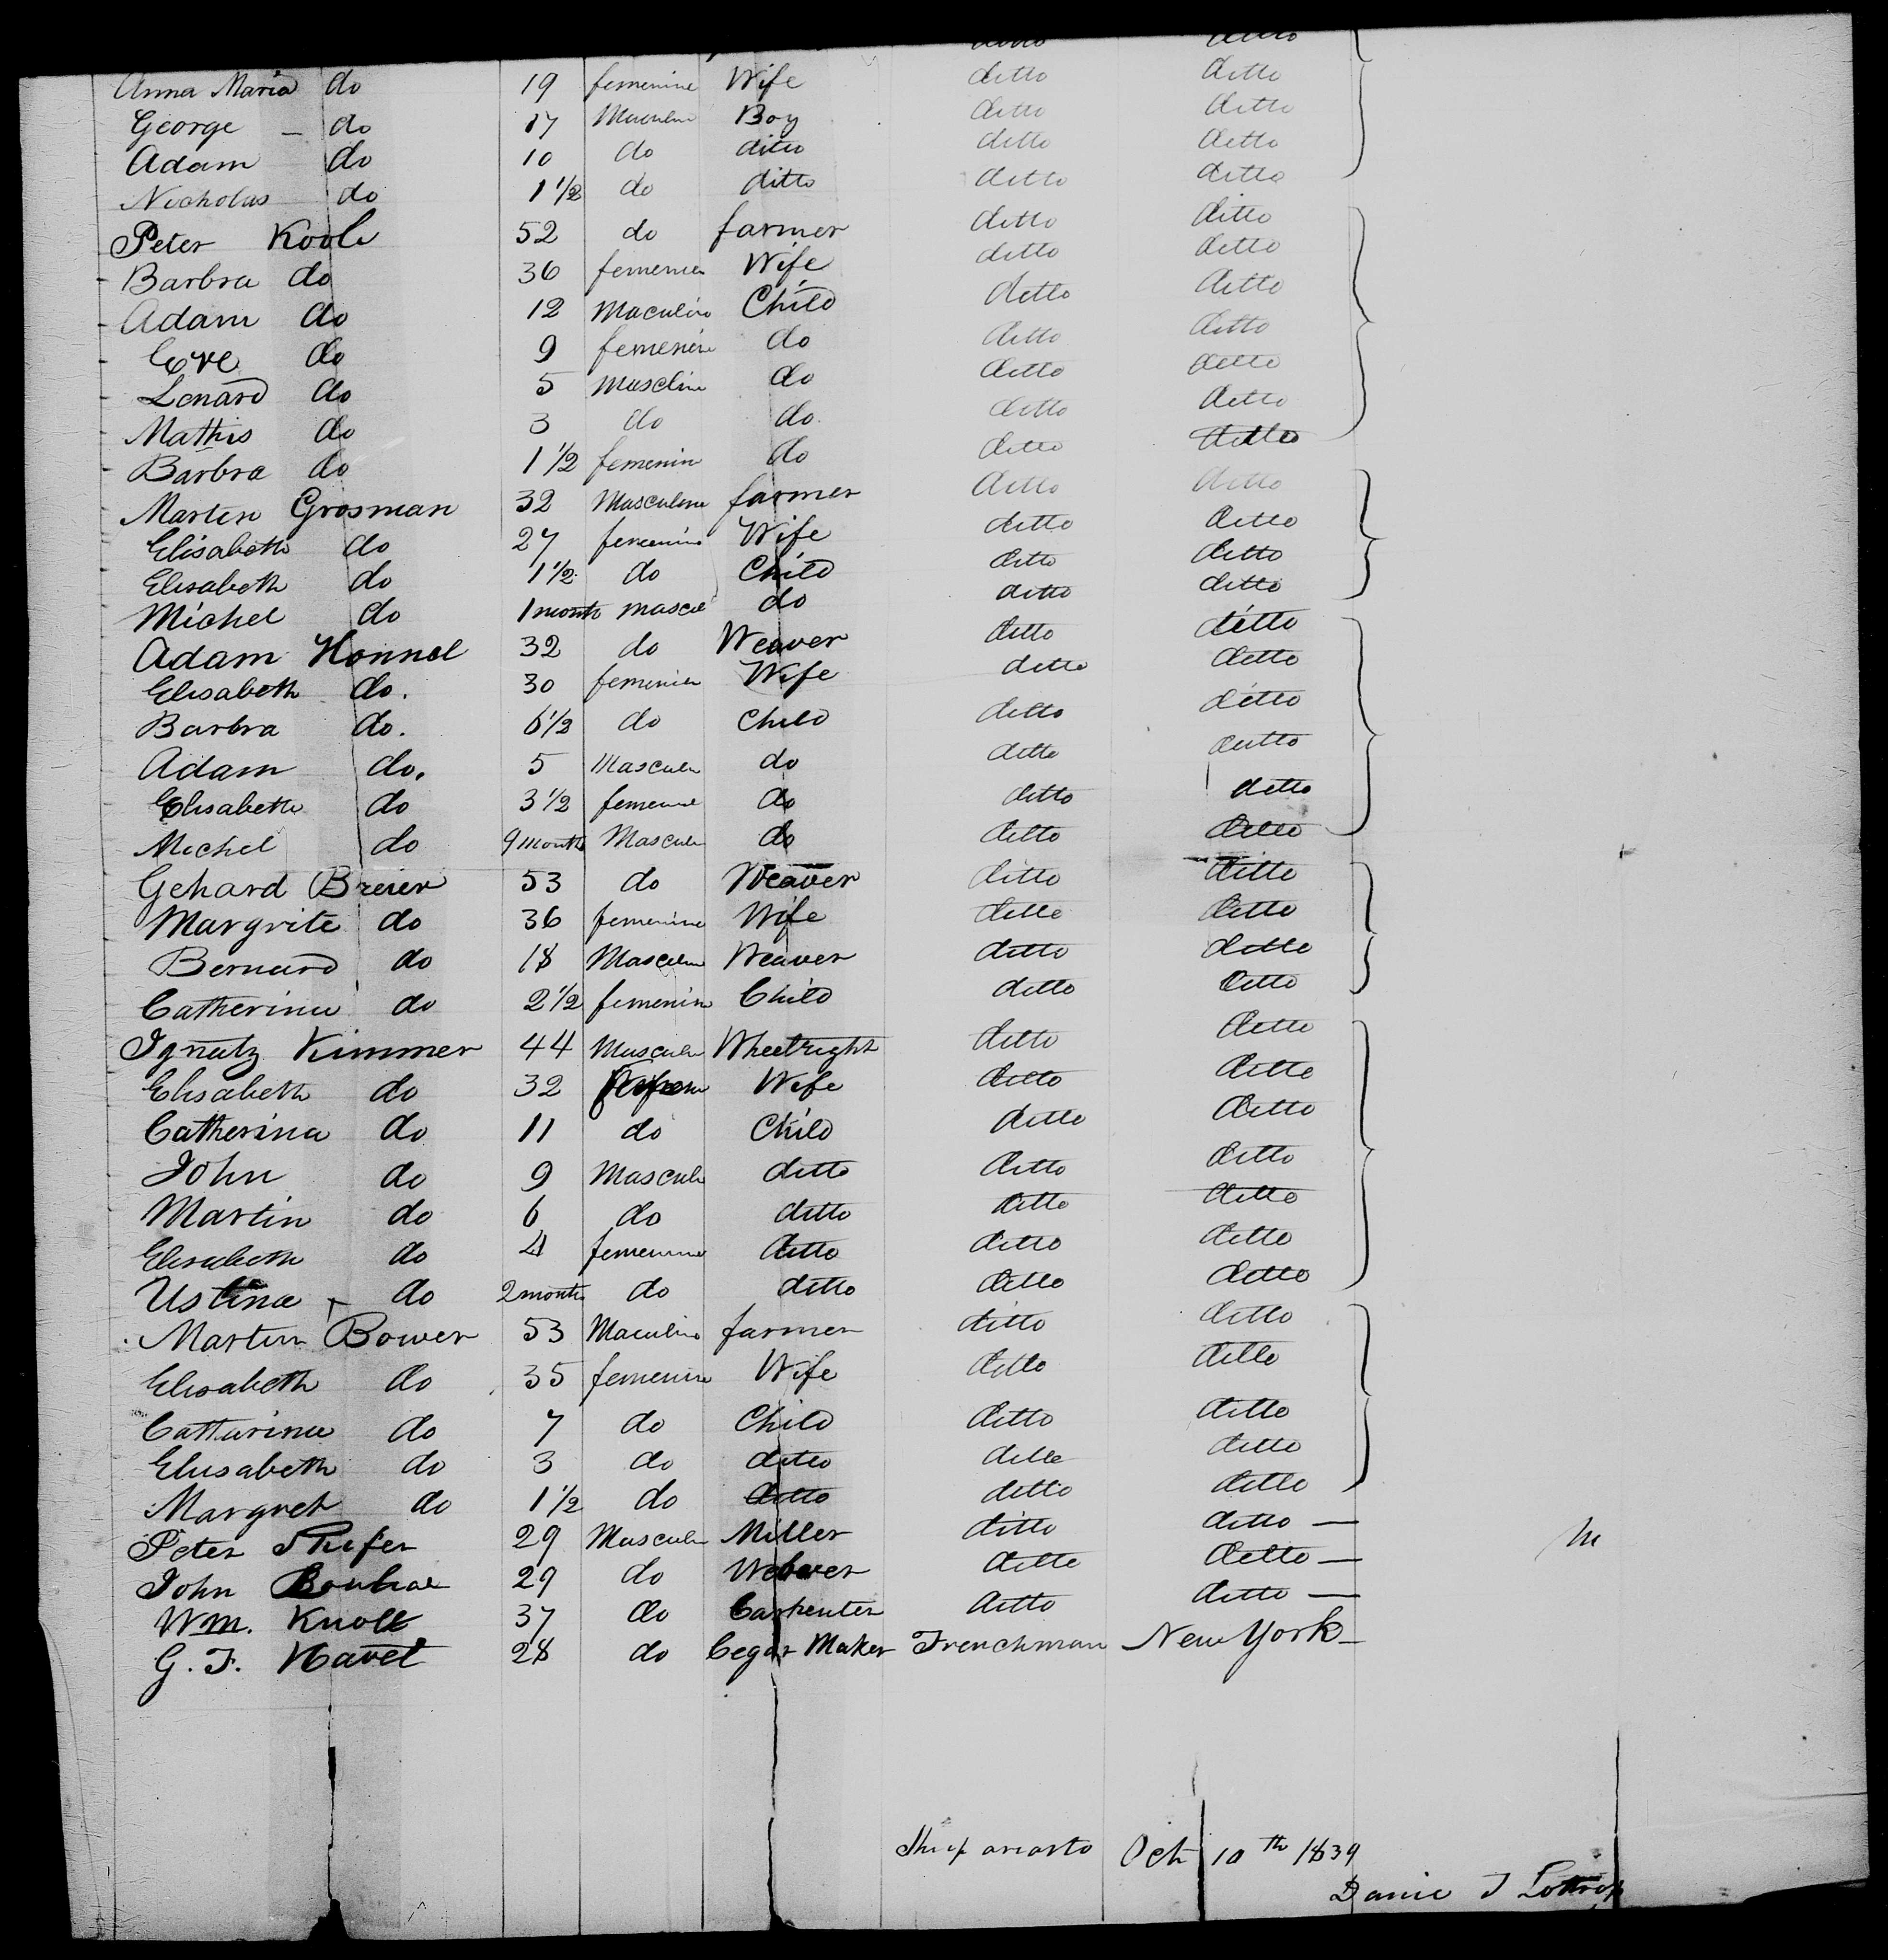 ditto ditto
Anna Maria do 19 femenine Wife ditto ditto
George - do 17 Masculin Boy ditto ditto
Adam do 10 do ditto ditto ditto
Nicholas do 1 1/2 do ditto ditto ditto
Peter 52 do farmer ditto ditto
Barbra do 36 femenin Wife ditto ditto
Adam do 12 Maculin Child ditto ditto
Eve do 9 femenin do ditto ditto
Lenard do 5 Masclin do ditto ditto
Mathis do 3 do do ditto ditto
Barbra do 1 1/2 femenin do ditto ditto
Marten Grosman 32 Masculine farmer ditto ditto
Elisabeth do 27 femenine Wife ditto ditto
Elisabeth do 1 1/2 do Child ditto ditto
Michel do 1 month mascu do ditto ditto
Adam Honnel 32 do Weaver ditto ditto
Elisabeth do. 30 femenin Wife ditto ditto
Barbra do. 6 1/2 do Child ditto ditto
Adam do. 5 Masculin do ditto ditto
Elisabeth do 3 1/2 femenine do ditto ditto
Michel do 9 month Masculin do ditto ditto
Gehard Breier 53 do Weaver ditto ditto
Margrite do 36 femenine Wife ditto ditto
Bernard do 18 Masculin Weaver ditto ditto
Catherina do 2 1/2 femenin Child ditto ditto
Ignatz Kimmer 44 Masculin Wheelright ditto ditto
Elisabeth do 32 Wife ditto ditto
Catherina do 11 do Child ditto ditto
John do 9 Masculi ditto ditto ditto
Martin do 6 do ditto ditto ditto
Elisabeth do 4 femenine ditto ditto ditto
Ustina - do 2 month do ditto ditto ditto
Martin Bower 53 Maculin farmer ditto ditto
Elisabeth do 35 femenine Wife ditto ditto
Catharina do 7 do Child ditto ditto
Elisabeth do 3 do ditto ditto ditto
Margret do 1 1/2 do ditto ditto ditto
Peter 29 Masculin Miller ditto ditto —
John 29 do Weaver ditto ditto —
Wm. Knoll 37 do Carpenter ditto ditto —
G. F. Havet 28 do Cegar Maker Frenchman New York —
Ship ariosto Oct 10th 1839
Danie T Lothrop